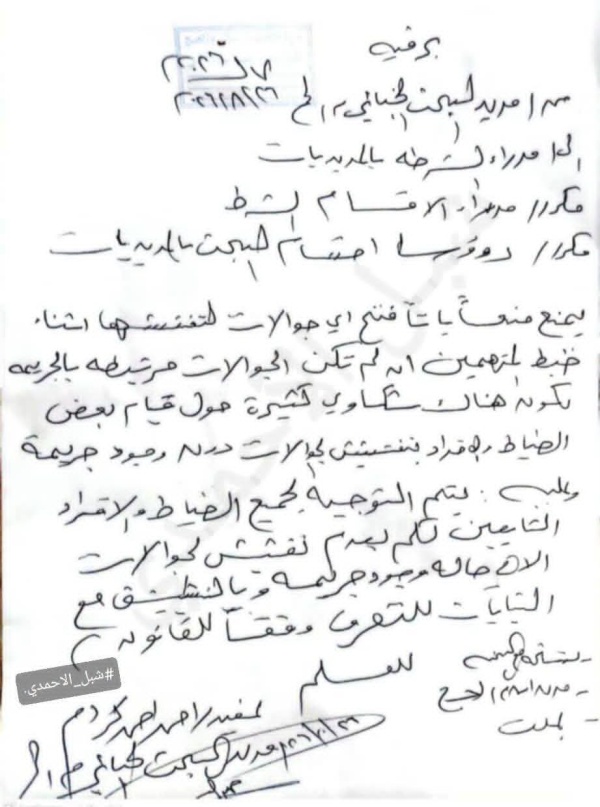 برقيه
٢٠٢٦
٢٠٢٦/٨/٢٦
من / مدير البحث الجنائي م / لحج
الى / مدراء الشرطه بالمديريات
مكرر / مدراء الاقسام الشرط
مكرر / رؤوسا اقسام البحث بالمديريات
يمنع منعاً باتاً فتح اي جوالات لتفتيشها اثناء
ضبط المتهمين ان لم تكن الجوالات مرتبطه بالجريمه
بكون هناك شكاوي كثيرة حول قيام بعض
الضباط والافراد بتفتيش الجوالات دون وجود جريمة
وعليه : يتم التوجيه لجميع الضباط والافراد
التابعين لكم بعدم تفتيش الجوالات
الا في حاله وجود جريمه وبالتنسيق مع
النيابات للتصرف وفقاً للقانون
للعلم
عميد / احمد
مدير البحث الجنائي م / لحج
#شبل_الاحمدي.
شبل الاحمدي